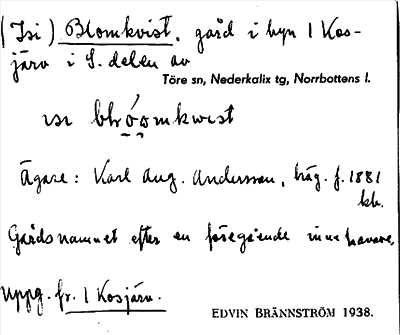 (Isi) Blomkvist, gård i byn 1 Kos-
järv i S. delen av
Töre sn, Nederkalix tg, Norrbottens l.
ısı
Ägare: Karl Aug. Andersson, häg. f. 1881
Gårdsnamnet efter en föregående innehavare.
Uppg. fr. 1 Kosjärv.
EDVIN BRÄNNSTRÖM 1938.